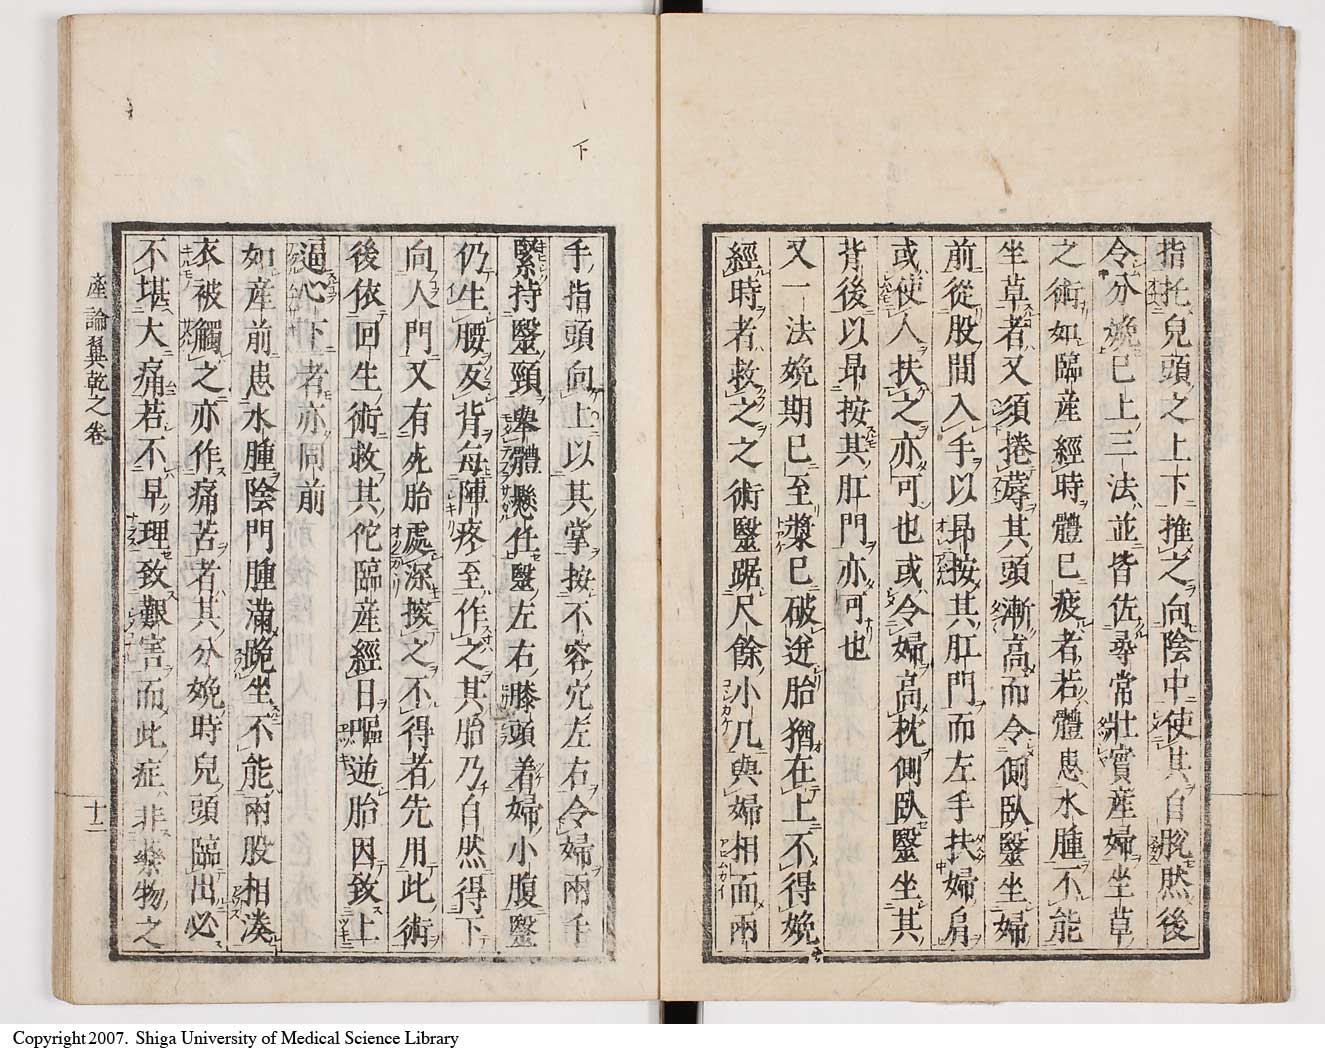 指托兒頭之上下推之向陰中使其自脫然後
令分娩已上三法並皆佐尋常壯實産婦坐草
之術如臨産經時體已疲者若體患水腫不能
坐草者又須捲蓐其頭漸高而令側臥毉坐婦
前從股間入手以昂按其肛門而左手扶婦肩
或使人扶之亦可也或令婦高枕側臥毉坐其
背後以昂按其肛門亦可也
又一法娩期已至漿已破迸胎猶在上不得娩
經時者救之之術毉踞尺餘小几與婦相面兩
手指頭向上以其掌按不容穴左右令婦兩手
緊持毉頸擧體懸任毉左右膝頭着婦小腹毉
仍生腰反背每陣疼至作之其胎乃自然得下
向人門又有死胎處深揬之不得者先用此術
後依回生術救其佗臨産經日嘔逆胎因致上
逼心下者亦同前
如産前患水腫陰門腫滿跪坐不能兩股相湊
衣被觸之亦作痛苦者其分娩時兒頭臨出必
不堪大痛若不早理致艱害而此症非藥物之
産論翼乾之卷
十二
下
Copyright 2007. Shiga University of Medical Science Library